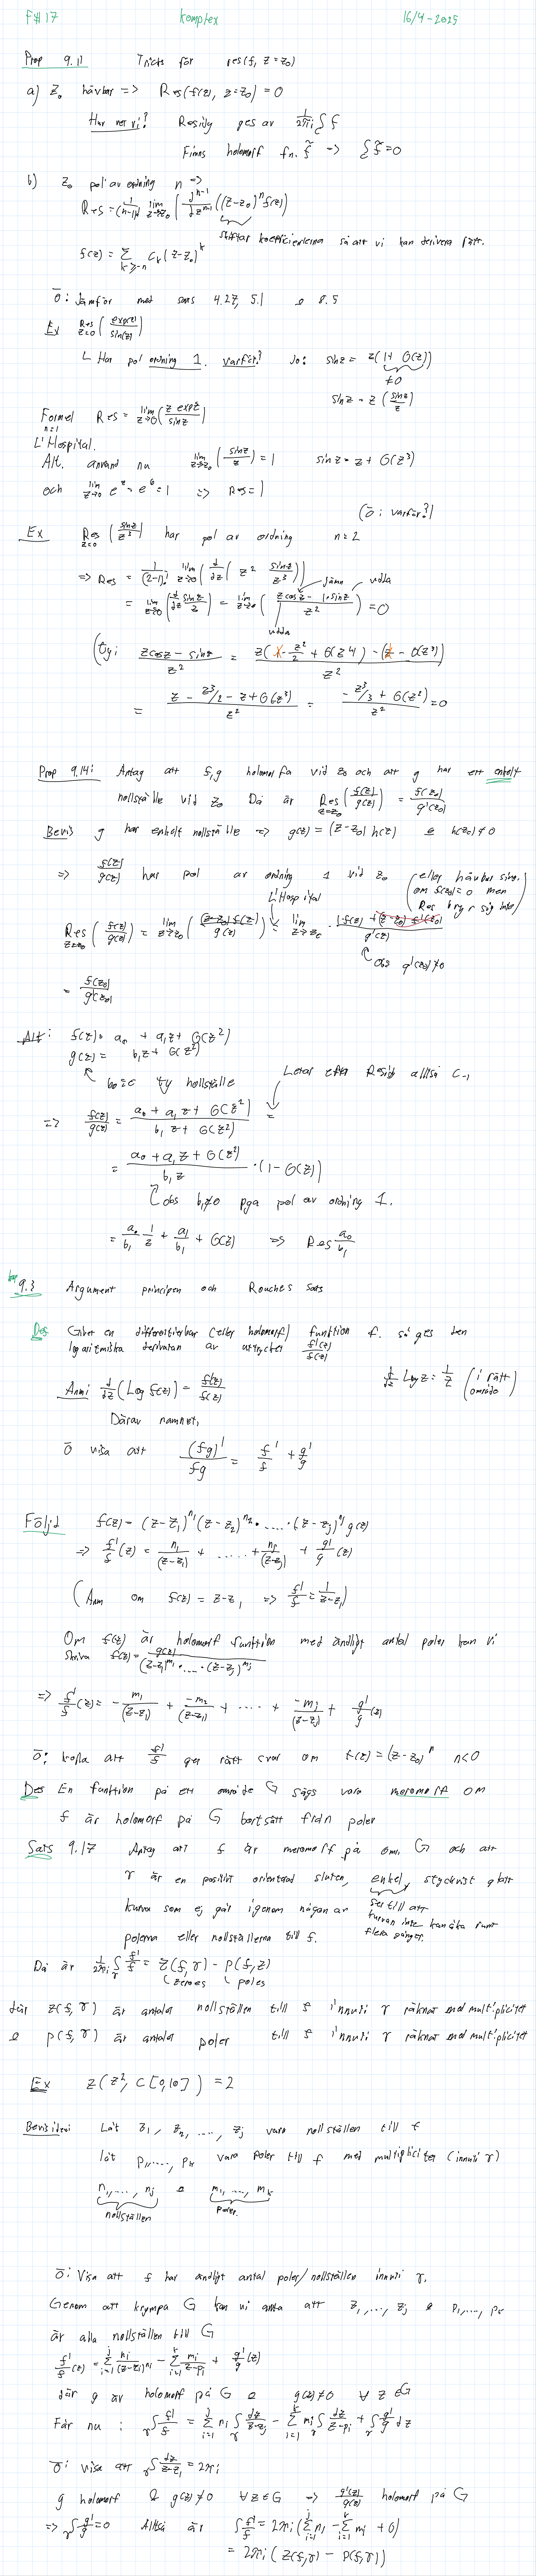 FÖ 17 Komplex 16/4-2025
Prop 9.11 Tricks för res(f, z=z₀)
a) z₀ hävbar => Res(f(z), z=z₀) = 0
Hur ser vi? Residy ges av 1/2πi ∫ f
Finns holomorf fn. f̃ -> ∫ f̃ = 0
b) z₀ pol av ordning n =>
Res = 1/(n-1)! lim z→z₀ ( d^(n-1)/dz^(n-1) ((z-z₀)^n f(z)) )
shiftar koefficienterna så att vi kan derivera fritt.
f(z) = ∑ k≥-n c_k (z-z₀)^k
Ö: Jämför med sats 4.27, 5.1 & 8.5
Ex Res z=0 ( exp(z)/sin(z) )
L Har pol ordning 1. varför? Jo: sin z = z(1 + O(z))
≠0
sin z = z (sin z/z)
Formel Res = lim z→0 ( z exp z / sin z )
n=1
L'Hospital.
Alt. använd nu lim z→z₀ (sin z/z) = 1 sin z = z + O(z³)
och lim z→0 e^z = e^0 = 1 => Res = 1
(Ö: varför?)
Ex Res z=0 ( sin z/z³ ) har pol av ordning n=2
=> Res = 1/(2-1)! lim z→0 ( d/dz ( z² sin z/z³ ) )
jämn udda
= lim z→0 ( d/dz sin z/z ) = lim z→0 ( (z cos z - 1·sin z)/z² ) = 0
udda
(Ty: (z cos z - sin z)/z² = (z(1 - z²/2 + O(z⁴)) - (z - O(z³)))/z²
= (z - z³/2 - z + O(z³))/z² = (-z³/3 + O(z²))/z² = 0
Prop 9.14: Antag att f,g holomorfa vid z₀ och att g har ett enkelt
nollställe vid z₀ Då är Res z=z₀ ( f(z)/g(z) ) = f(z₀)/g'(z₀)
Bevis g har enkelt nollställe => g(z) = (z-z₀) h(z) & h(z₀) ≠ 0
=> f(z)/g(z) har pol av ordning 1 vid z₀ (eller hävbar sing. om f(z₀)=0 men Res bryr sig inte)
L'Hospital
Res z=z₀ ( f(z)/g(z) ) = lim z→z₀ ( (z-z₀) f(z)/g(z) ) = lim z→z₀ (1·f(z) + (z-z₀) f'(z₀))/g'(z)
obs g'(z₀) ≠ 0
= f(z₀)/g'(z₀)
Alt: f(z) = a₀ + a₁z + O(z²)
g(z) = b₁z + O(z²)
b₀=0 ty nollställe Letar efter Residy alltså c₋₁
=> f(z)/g(z) = (a₀ + a₁z + O(z²))/(b₁z + O(z²)) =
= (a₀ + a₁z + O(z²))/(b₁z) · (1 - O(z))
obs b₁≠0 pga pol av ordning 1.
= a₀/b₁ 1/z + a₁/b₁ + O(z) => Res a₀/b₁
kap 9.3 Argument principen och Rouches sats
Def Givet en differentierbar (eller holomorf) funktion f. så ges den
logaritmiska derivatan av uttrycket f'(z)/f(z)
Anm: d/dz (Log f(z)) = f'(z)/f(z) d/dz Log z = 1/z (i rätt område)
Därav namnet.
Ö visa att (fg)'/fg = f'/f + g'/g
Följd f(z) = (z-z₁)^n₁ (z-z₂)^n₂ · .... · (z-z_j)^n_j g(z)
=> f'/f (z) = n₁/(z-z₁) + ...... + n_j/(z-z_j) + g'/g (z)
(Anm om f(z) = z-z₁ => f'/f = 1/(z-z₁))
Om f(z) är holomorf funktion med ändligt antal poler kan vi
skriva f(z) = g(z)/((z-z₁)^m₁ · .... · (z-z_j)^m_j)
=> f'/f (z) = -m₁/(z-z₁) + -m₂/(z-z₁) + .... + -m_j/(z-z_j) + g'/g (z)
Ö: kolla att f'/f ger rätt svar om f(z) = (z-z₀)^n n<0
Def En funktion på ett område G sägs vara meromorf om
f är holomorf på G bortsätt från poler
Sats 9.17 Antag att f är meromorf på omr. G och att
γ är en positivt orienterad sluten, enkel, styckvist glatt
kurva som ej går igenom någon av ser till att kurvan inte kan åka runt flera gånger.
polerna eller nollställena till f.
Då är 1/2πi ∫γ f'/f = Z(f,γ) - P(f,z)
zeroes poles
där Z(f,γ) är antalet nollställen till f innuti γ räknat med multiplicitet
& P(f,γ) är antalet poler till f innuti γ räknat med multiplicitet
Ex Z(z², C[0,10]) = 2
Bevis idé: Låt z₁, z₂, ...., z_j vara nollställen till f
låt p₁,...., p_k vara poler till f med multipliciter (innuti γ)
n₁,...., n_j & m₁, ..., m_k
nollställen poler
Ö: Visa att f har ändligt antal poler/nollställen innuti γ.
Genom att krympa G kan vi anta att z₁,...., z_j & p₁,...., p_k
är alla nollställen till G
f'/f (z) = ∑ i=1 j n_i/(z-z_i)^n_i - ∑ i=1 k m_i/(z-p_i) + g'/g (z)
där g är holomorf på G & g(z)≠0 ∀ z ∈G
Får nu: γ∫ f'/f = ∑ i=1 j n_i ∫γ dz/(z-z_j) - ∑ i=1 k m_i ∫γ dz/(z-p_i) + γ∫ g'/g dz
Ö: visa att γ∫ dz/(z-z₁) = 2πi
g holomorf & g(z)≠0 ∀z∈G => g'(z)/g(z) holomorf på G
=> γ∫ g'/g = 0 Alltså är ∫ f'/f = 2πi (∑ i=1 j n_i - ∑ i=1 k m_i + 0)
= 2πi (Z(f,γ) - P(f,γ))